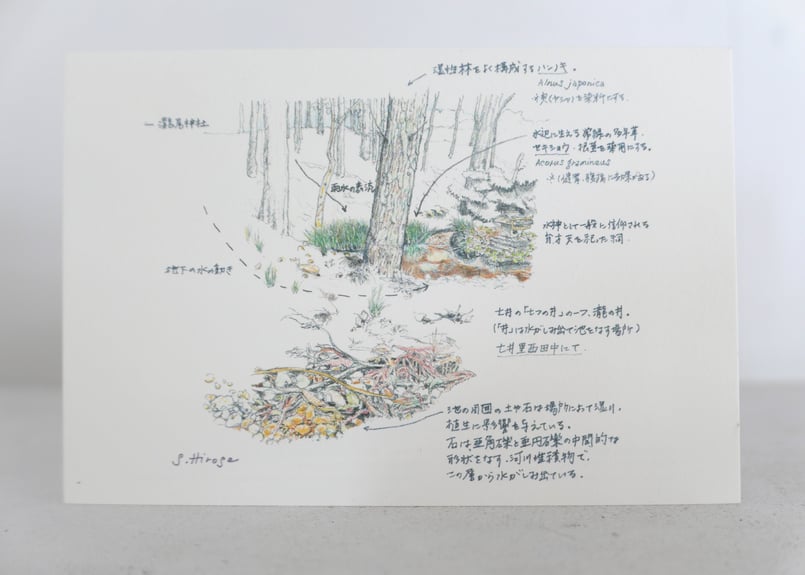 湿性林をよく構成するハンノキ。
Alnus japonica
実(ヤシャ)を染料にする。
滝尾神社
水辺に生える常緑の多年草、
セキショウ。根茎を薬用にする。
Acorus gramineus
(健胃、腹痛に効果がある)
雨水の表流
水神として一般に信仰される
弁才天を祀った祠。
地下の水の動き
七井の「七つの井」の一つ、瀧の井。
(「井」は水がしみ出て池をなす場所)
七井里西田中にて.
池の周囲の土や石は場所において湿り、
植生に影響を与えている。
石は亜角礫と亜円礫の中間的な
形状をなす、河川堆積物で、
この層から水がしみ出ている。
S.Hirose